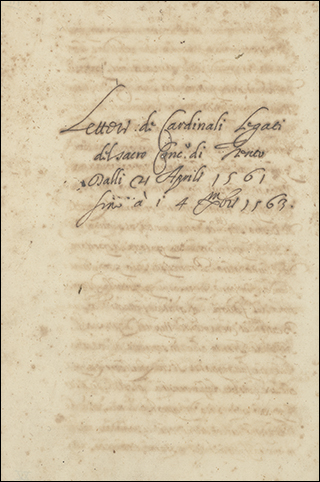 Lettere de Cardinali Legati
del sacro Conc.º di Trento
Dalli 21 Aprili 1561
fino à i 4 1563.